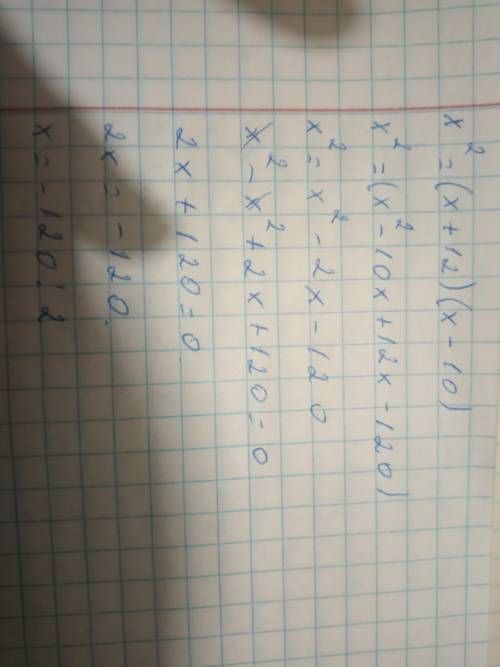 x² = (x + 12)(x - 10)
x² = (x² - 10x + 12x - 120)
x² = x² - 2x - 120
x² - x² + 2x + 120 = 0
2x + 120 = 0
2x = - 120.
x = - 120 : 2